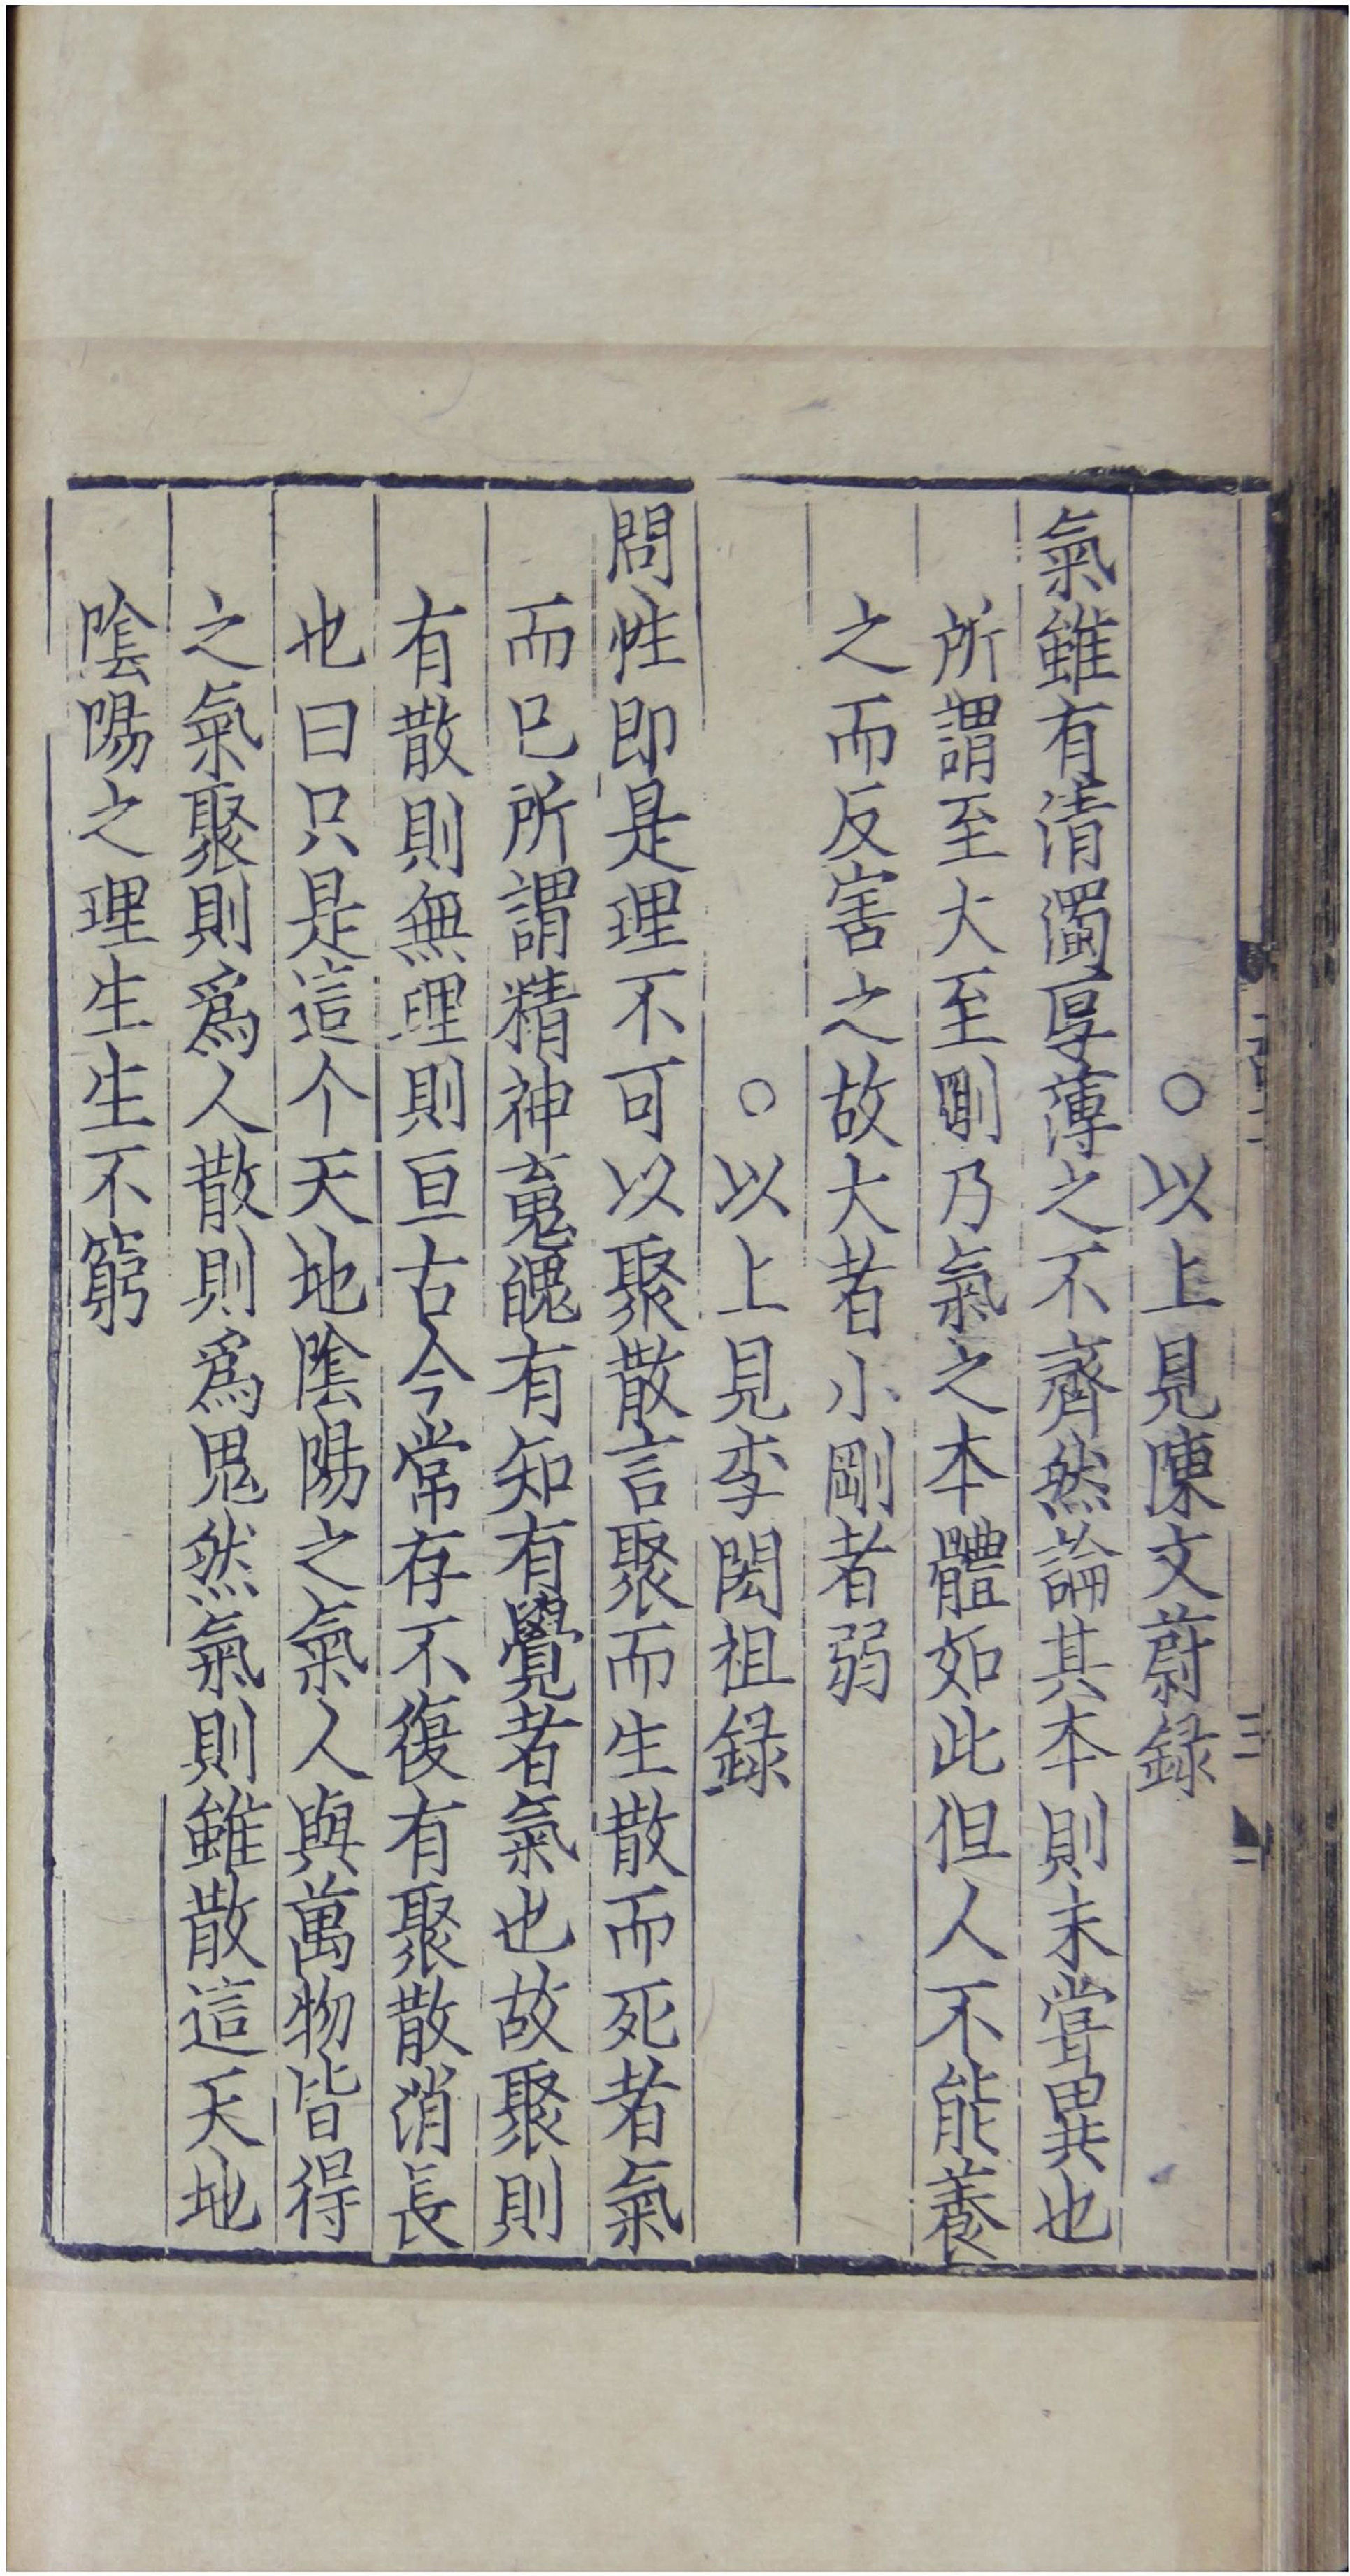 ○以上見陳文蔚録
氣雖有清濁厚薄之不齊然論其本則未嘗異也
所謂至大至剛乃氣之本體如此但人不能養
之而反害之故大者小剛者弱
○以上見李閎祖録
問性即是理不可以聚散言聚而生散而死者氣
而已所謂精神䰟魄有知有覺者氣也故聚則
有散則無理則亘古今常存不復有聚散消長
也曰只是這个天地隂陽之氣人與萬物皆得
之氣聚則爲人散則爲鬼然氣則雖散這天地
隂陽之理生生不窮